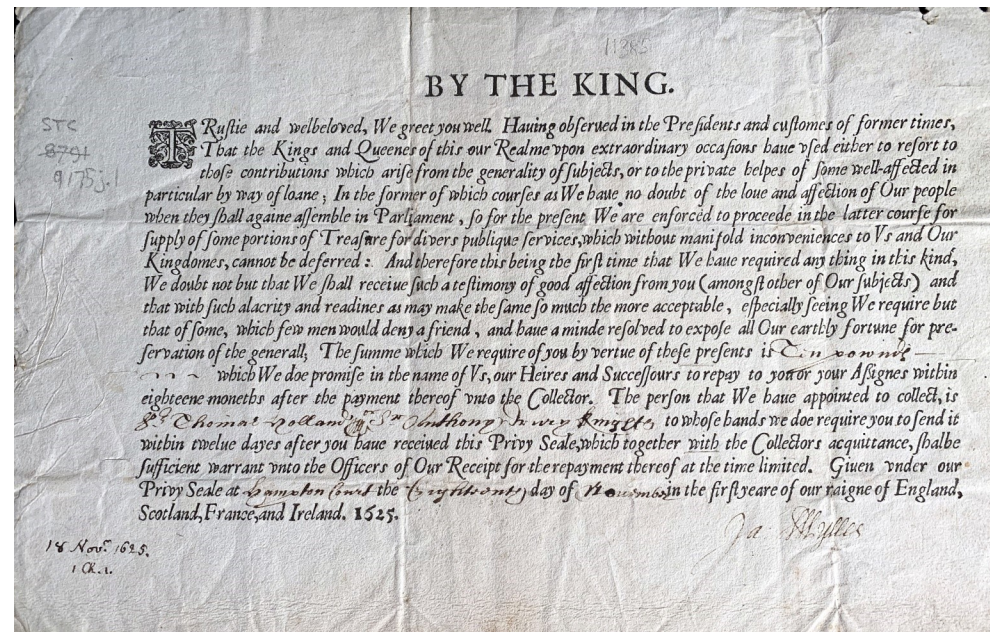 11385
BY THE KING.
STC
8791
9175j.1
TRustie and welbeloved, We greet you well. Hauing obserued in the Presidents and customes of former times,
That the Kings and Queenes of this our Realme vpon extraordinary occasions haue vsed either to resort to
those contributions which arise from the generality of subjects, or to the private helpes of some well-affected in
particular by way of loane; In the former of which courses as We haue no doubt of the loue and affection of Our people
when they shall againe assemble in Parliament, so for the present We are enforced to proceede in the latter course for
supply of some portions of Treasure for divers publique services, which without manifold inconveniences to Vs and Our
Kingdomes, cannot be deferred: And therefore this being the first time that We haue required any thing in this kind,
We doubt not but that We shall receiue such a testimony of good affection from you (amongst other of Our subjects) and
that with such alacrity and readines as may make the same so much the more acceptable, especially seeing We require but
that of some, which few men would deny a friend, and haue a minde resolved to expose all Our earthly fortune for pre-
servation of the generall; The summe which We require of you by vertue of these presents is Ten pownds
which We doe promise in the name of Vs, our Heires and Successours to repay to you or your Assignes within
eighteene moneths after the payment thereof vnto the Collector. The person that We haue appointed to collect, is
Sr Thomas Holland Sr Anthony Drury Knights to whose hands we doe require you to send it
within twelue dayes after you haue received this Privy Seale, which together with the Collectors acquittance, shalbe
sufficient warrant vnto the Officers of Our Receipt for the repayment thereof at the time limited. Giuen vnder our
Privy Seale at Hampton Court the Eighteenth day of November in the first yeare of our raigne of England,
Scotland, France, and Ireland. 1625.
Ja: Mylles
18 Novr. 1625.
1 Ch. 1.